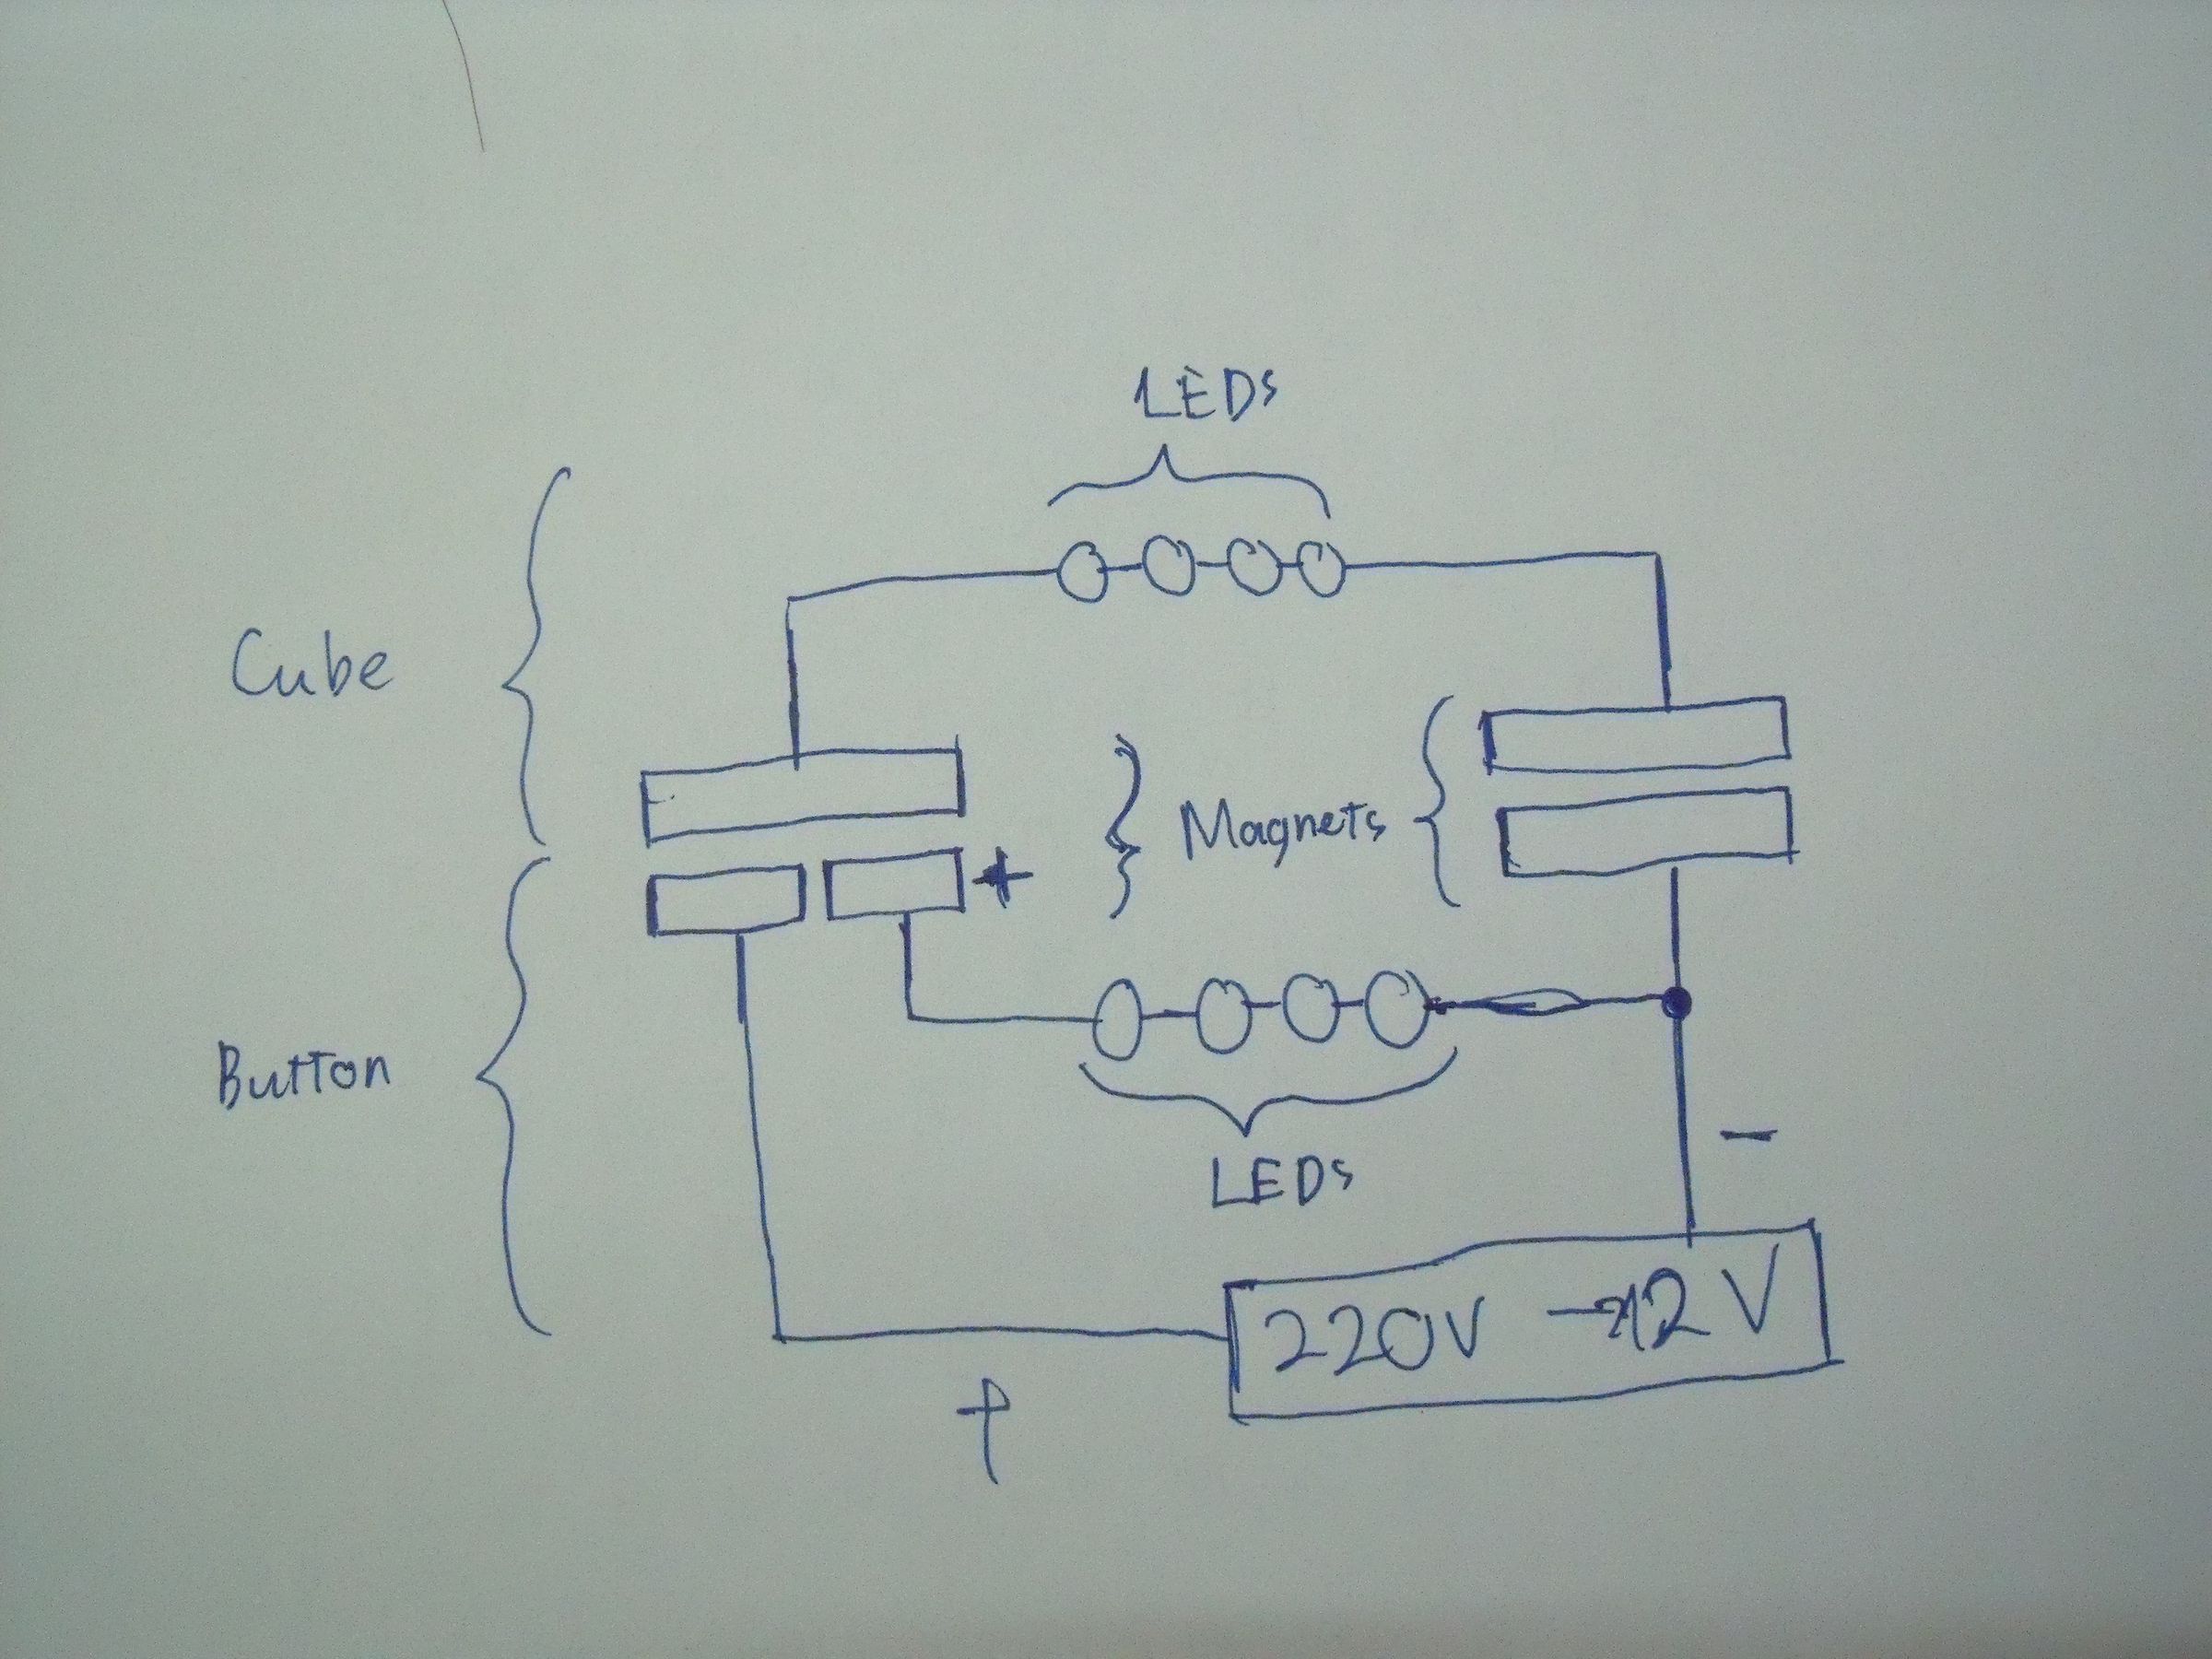 LEDs
Cube
Magnets
+
Button
LEDs
-
220V → 12 V
+